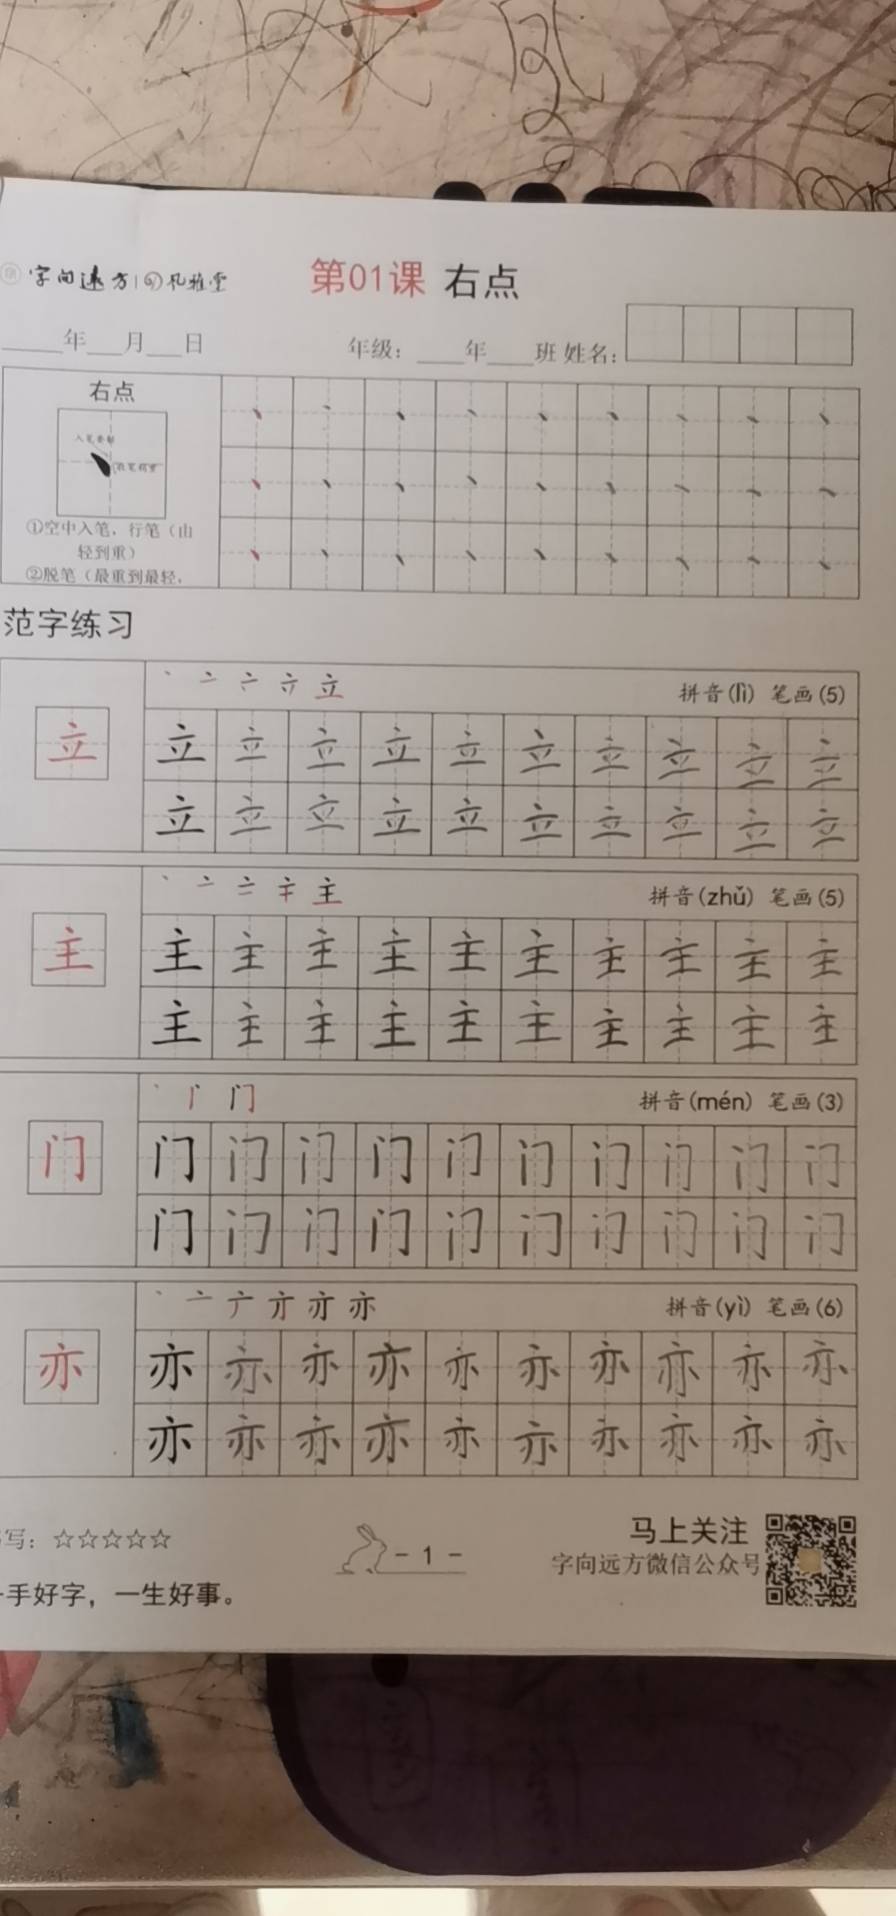 字向远方 风雅堂
第01课 右点
____年___月___日 年级：____年____班 姓名：
右点
①空中入笔，行笔（由
轻到重）
②脱笔（最重到最轻，
范字练习
立 拼音(lì) 笔画(5)
立
立 立 立 立 立 立 立 立 立 立
立 立 立 立 立 立 立 立 立 立
主 拼音(zhǔ) 笔画(5)
主
主 主 主 主 主 主 主 主 主 主
主 主 主 主 主 主 主 主 主 主
门 拼音(mén) 笔画(3)
门
门 门 门 门 门 门 门 门 门 门
门 门 门 门 门 门 门 门 门 门
亦 拼音(yì) 笔画(6)
亦
亦 亦 亦 亦 亦 亦 亦 亦 亦 亦
亦 亦 亦 亦 亦 亦 亦 亦 亦 亦
写：☆☆☆☆☆
- 1 -
马上关注
字向远方微信公众号
一手好字，一生好事。